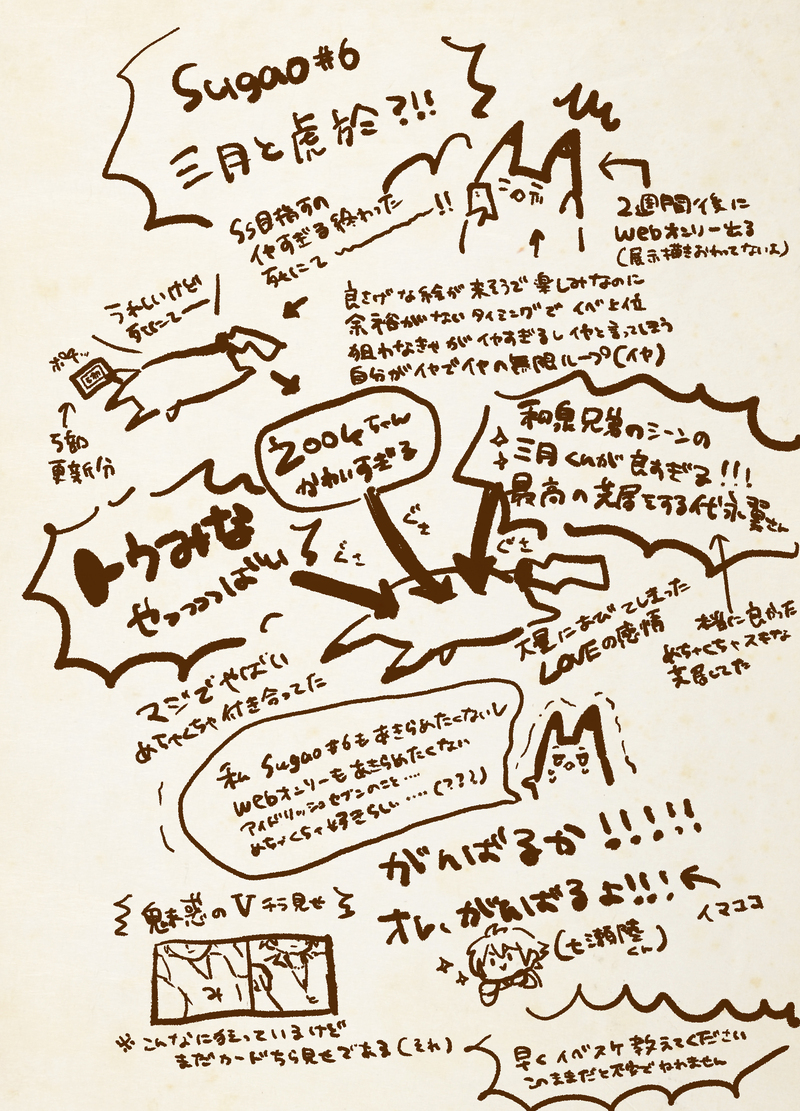 Sugao#6
三月と虎於?!!
SS目指すの
イヤすぎる終わった
死にて〜〜!!
2週間後に
webオンリー出る
(展示描きおわってないよ)
良さげな絵が来そうで楽しみなのに
余裕がないタイミングでイベ上位
狙わなきゃがイヤすぎるしイヤと言ってしまう
自分がイヤでイヤの無限ループ(イヤ)
うれしいけど
死にて〜
ポチッ
5部
更新分
ZOOĻちゃん
かわいすぎる
和泉兄弟のシーンの
三月くんが良すぎる!!!
最高の芝居をする代永翼さん
トウみな
やっっっばい
ぐさ
ぐさ
ぐさ
大量にあびてしまった
LOVEの感情
本当に良かった
めちゃくちゃスキな
芝居してた
マジでやばい
めちゃくちゃ付き合ってた
私 Sugao#6もあきらめたくないし
webオンリーもあきらめたくない
アイドリッシュセブンのこと‥‥
めちゃくちゃ好きらしい‥‥(???)
がんばるか!!!!!
オレ、がんばるよ!!!
イマココ
(七瀬陸
くん)
魅惑のVチラ見せ
み
※こんなに狂っているけど
まだカードちら見せである(それ)
早くイベスケ教えてください
このままだと不安でねれません